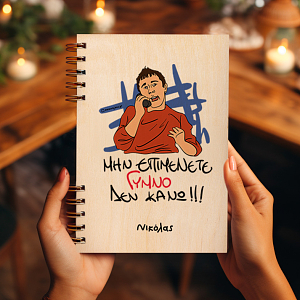 ΜΗΝ ΕΠΙΜΕΝΕΤΕ
ΓΥΜΝΟ
ΔΕΝ ΚΑΝΩ!!!
Νικόλας